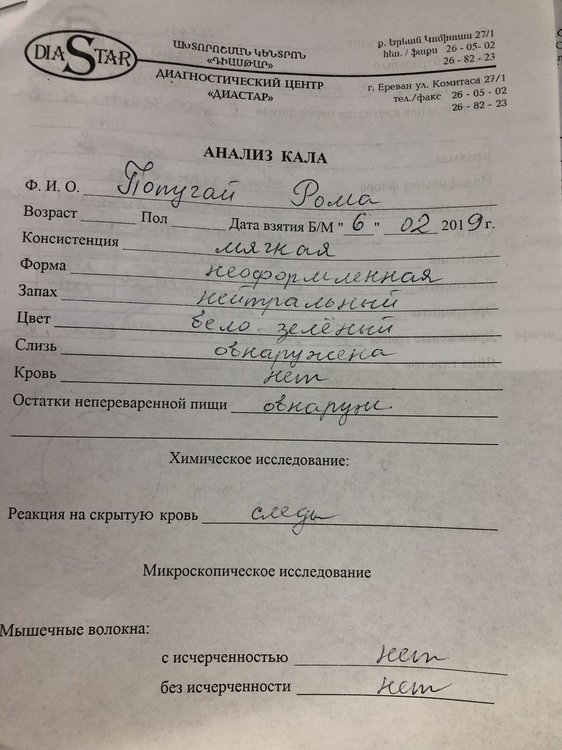 DIASTAR
ԱԽՏՈՐՈՇՄԱՆ ԿԵՆՏՐՈՆ
«ԴԻԱՍԹԱՐ»
ДИАГНОСТИЧЕСКИЙ ЦЕНТР
«ДИАСТАР»
ք. Երևան Կոմիտասի 27/1
հեռ. / ֆաքս 26 - 05 - 02
26 - 82 - 23
г. Ереван ул. Комитаса 27/1
тел./факс 26 - 05 - 02
26 - 82 - 23
АНАЛИЗ КАЛА
Ф. И. О. Попугай Рома
Возраст Пол Дата взятия Б/М "6" 02 2019 г.
Консистенция мягкая
Форма неоформленная
Запах нейтральный
Цвет бело-зелёный
Слизь обнаружена
Кровь нет
Остатки непереваренной пищи обнаруж.
Химическое исследование:
Реакция на скрытую кровь следы
Микроскопическое исследование
Мышечные волокна:
с исчерченностью нет
без исчерченности нет